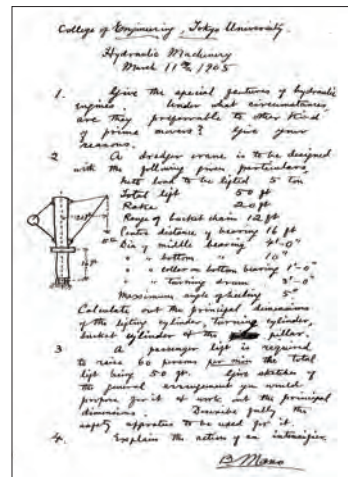 College of Engineering, Tokyo University.
Hydraulic Machinery
March 11th, 1905
1. Give the special features of hydraulic
engines. Under what circumstances
are they preferable to other kind
of prime movers? Give your
reasons.
2 A dredger crane is to be designed
with the following given particulars,
Nett load to be lifted 5 ton
Total lift 50 ft
Rake 20 ft
Range of bucket chain 12 ft
Centre distance of bearing 16 ft
Dia of middle bearing 4'-0"
" " bottom " 10"
" " collar on bottom bearing 1'-0"
" " turning drum 3'-0"
Maximum angle of heeling 5°
Calculate out the principal dimensions
of the lifting cylinder, turning cylinder,
bucket cylinder & the pillar.
3 A passenger lift is required
to raise 60 persons per min the total
lift being 50 ft. Give sketches of
the general arrangement you would
propose for it & work out the principal
dimensions. Describe fully the
safety apparatus to be used for it.
4. Explain the action of an intensifier.
B Mano